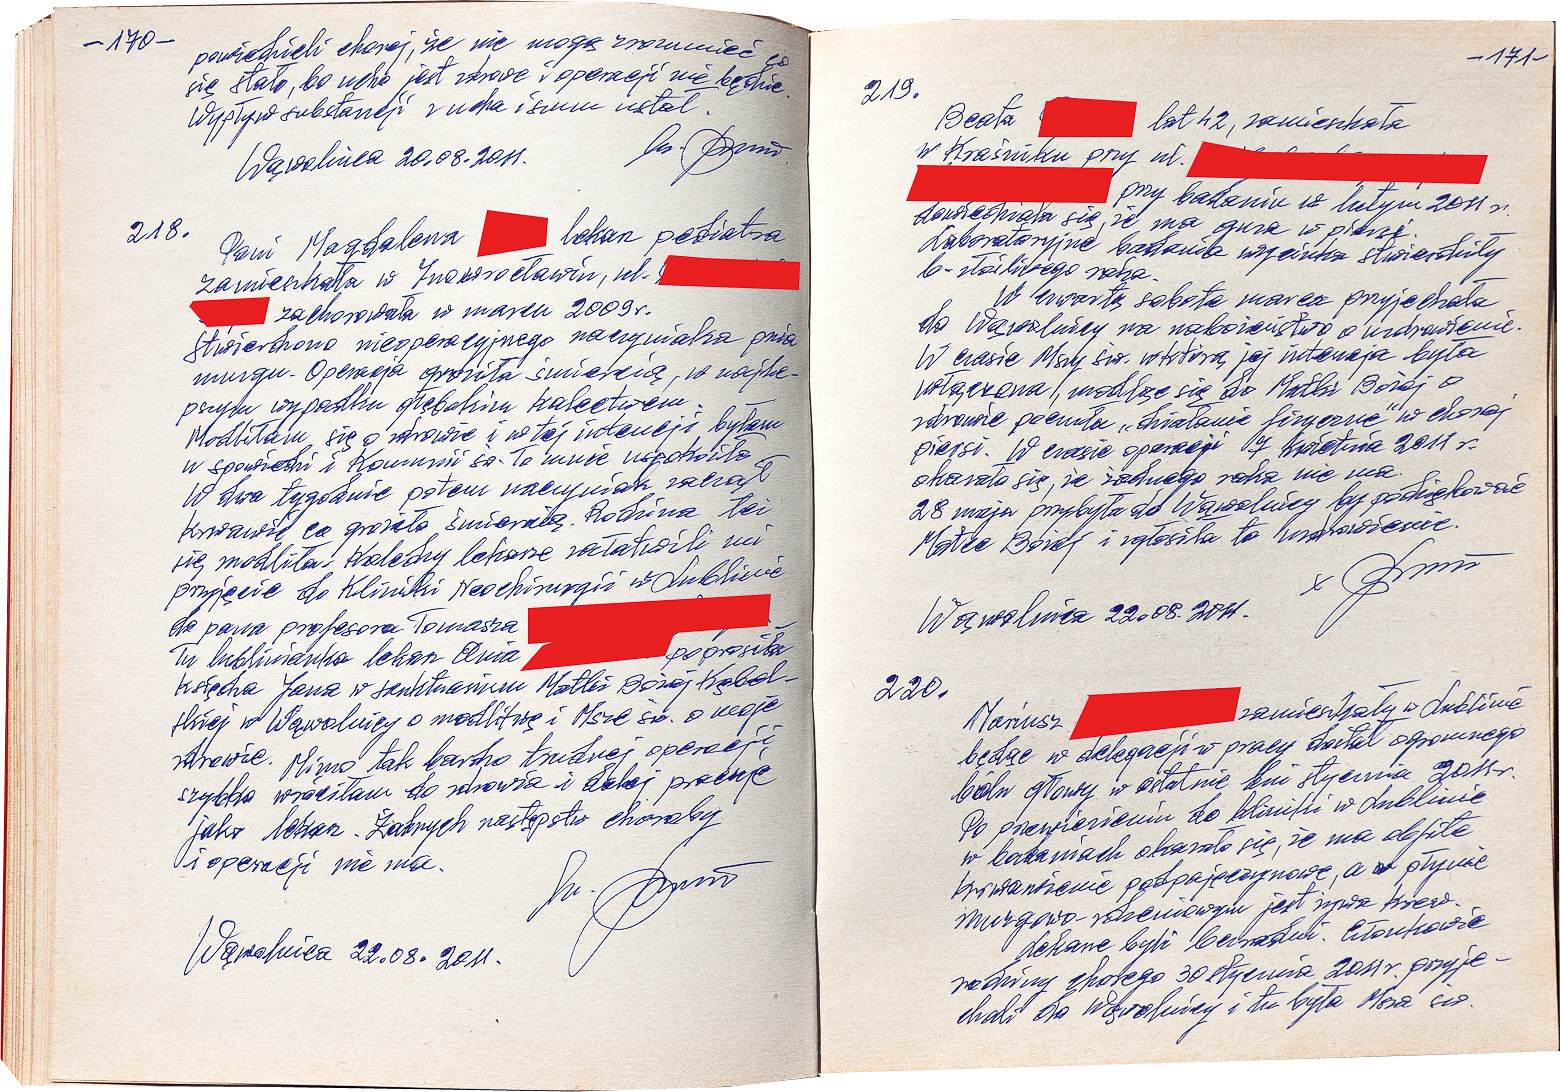 -170-
powiedzieli chorej, że nie mogą zrozumieć co
się stało, bo ucho jest zdrowe i operacji nie będzie.
Wypływ substancji z ucha i szum ustał.
Wąwolnica 20.08.2011.
218.
Pani Magdalena lekarz pediatra
zamieszkała w Inowrocławiu, ul.
zachorowała w marcu 2009 r.
Stwierdzono nieoperacyjnego naczyniaka pnia
mózgu. Operacja groziła śmiercią, w najle-
pszym wypadku głębokim kalectwem.
Modliłam się o zdrowie i w tej intencji byłam
u spowiedzi i Komunii św. To mnie uspokoiło
W dwa tygodnie potem naczyniak zaczął
krwawić co groziło śmiercią. Rodzina też
się modliła. Koledzy lekarze załatwili mi
przyjęcie do Kliniki Neochirurgii w Lublinie
do pana profesora Tomasza
Tu lublinianka lekarz Ania poprosiła
księdza Jana w sanktuarium Matki Bożej Kębel-
skiej w Wąwolnicy o modlitwę i Mszę św. o moje
zdrowie. Mimo tak bardzo trudnej operacji
szybko wróciłam do zdrowia i dalej pracuję
jako lekarz. Żadnych następstw choroby
i operacji nie ma.
Wąwolnica 22.08.2011.
-171-
219.
Beata lat 42, zamieszkała
w Kraśniku przy ul.
przy badaniu w lutym 2011 r.
dowiedziała się, że ma guza w piersi.
Laboratoryjne badania wycinka stwierdziły
b. złośliwego raka.
W czwartą sobotę marca przyjechała
do Wąwolnicy na nabożeństwo o uzdrowienie.
W czasie Mszy św. w którą jej intencja była
włączona, modląc się do Matki Bożej o
zdrowie poczuła „działanie fizyczne" w chorej
piersi. W czasie operacji 7 kwietnia 2011 r.
okazało się, że żadnego raka nie ma.
28 maja przybyła do Wąwolnicy by podziękować
Matce Bożej i zgłosiła to uzdrowienie.
x
Wąwolnica 22.08.2011.
220.
Mariusz zamieszkały w Lublinie
będąc w delegacji w pracy dostał ogromnego
bólu głowy w ostatnie dni stycznia 2011 r.
Po przewiezieniu do kliniki w Lublinie
w badaniach okazało się, że ma obfite
krwawienie podpajęczynowe, a w płynie
mózgowo-rdzeniowym jest żywa krew.
Lekarze byli bezradni. Członkowie
rodziny chorego 30 stycznia 2011 r. przyje-
chali do Wąwolnicy i tu była Msza św.